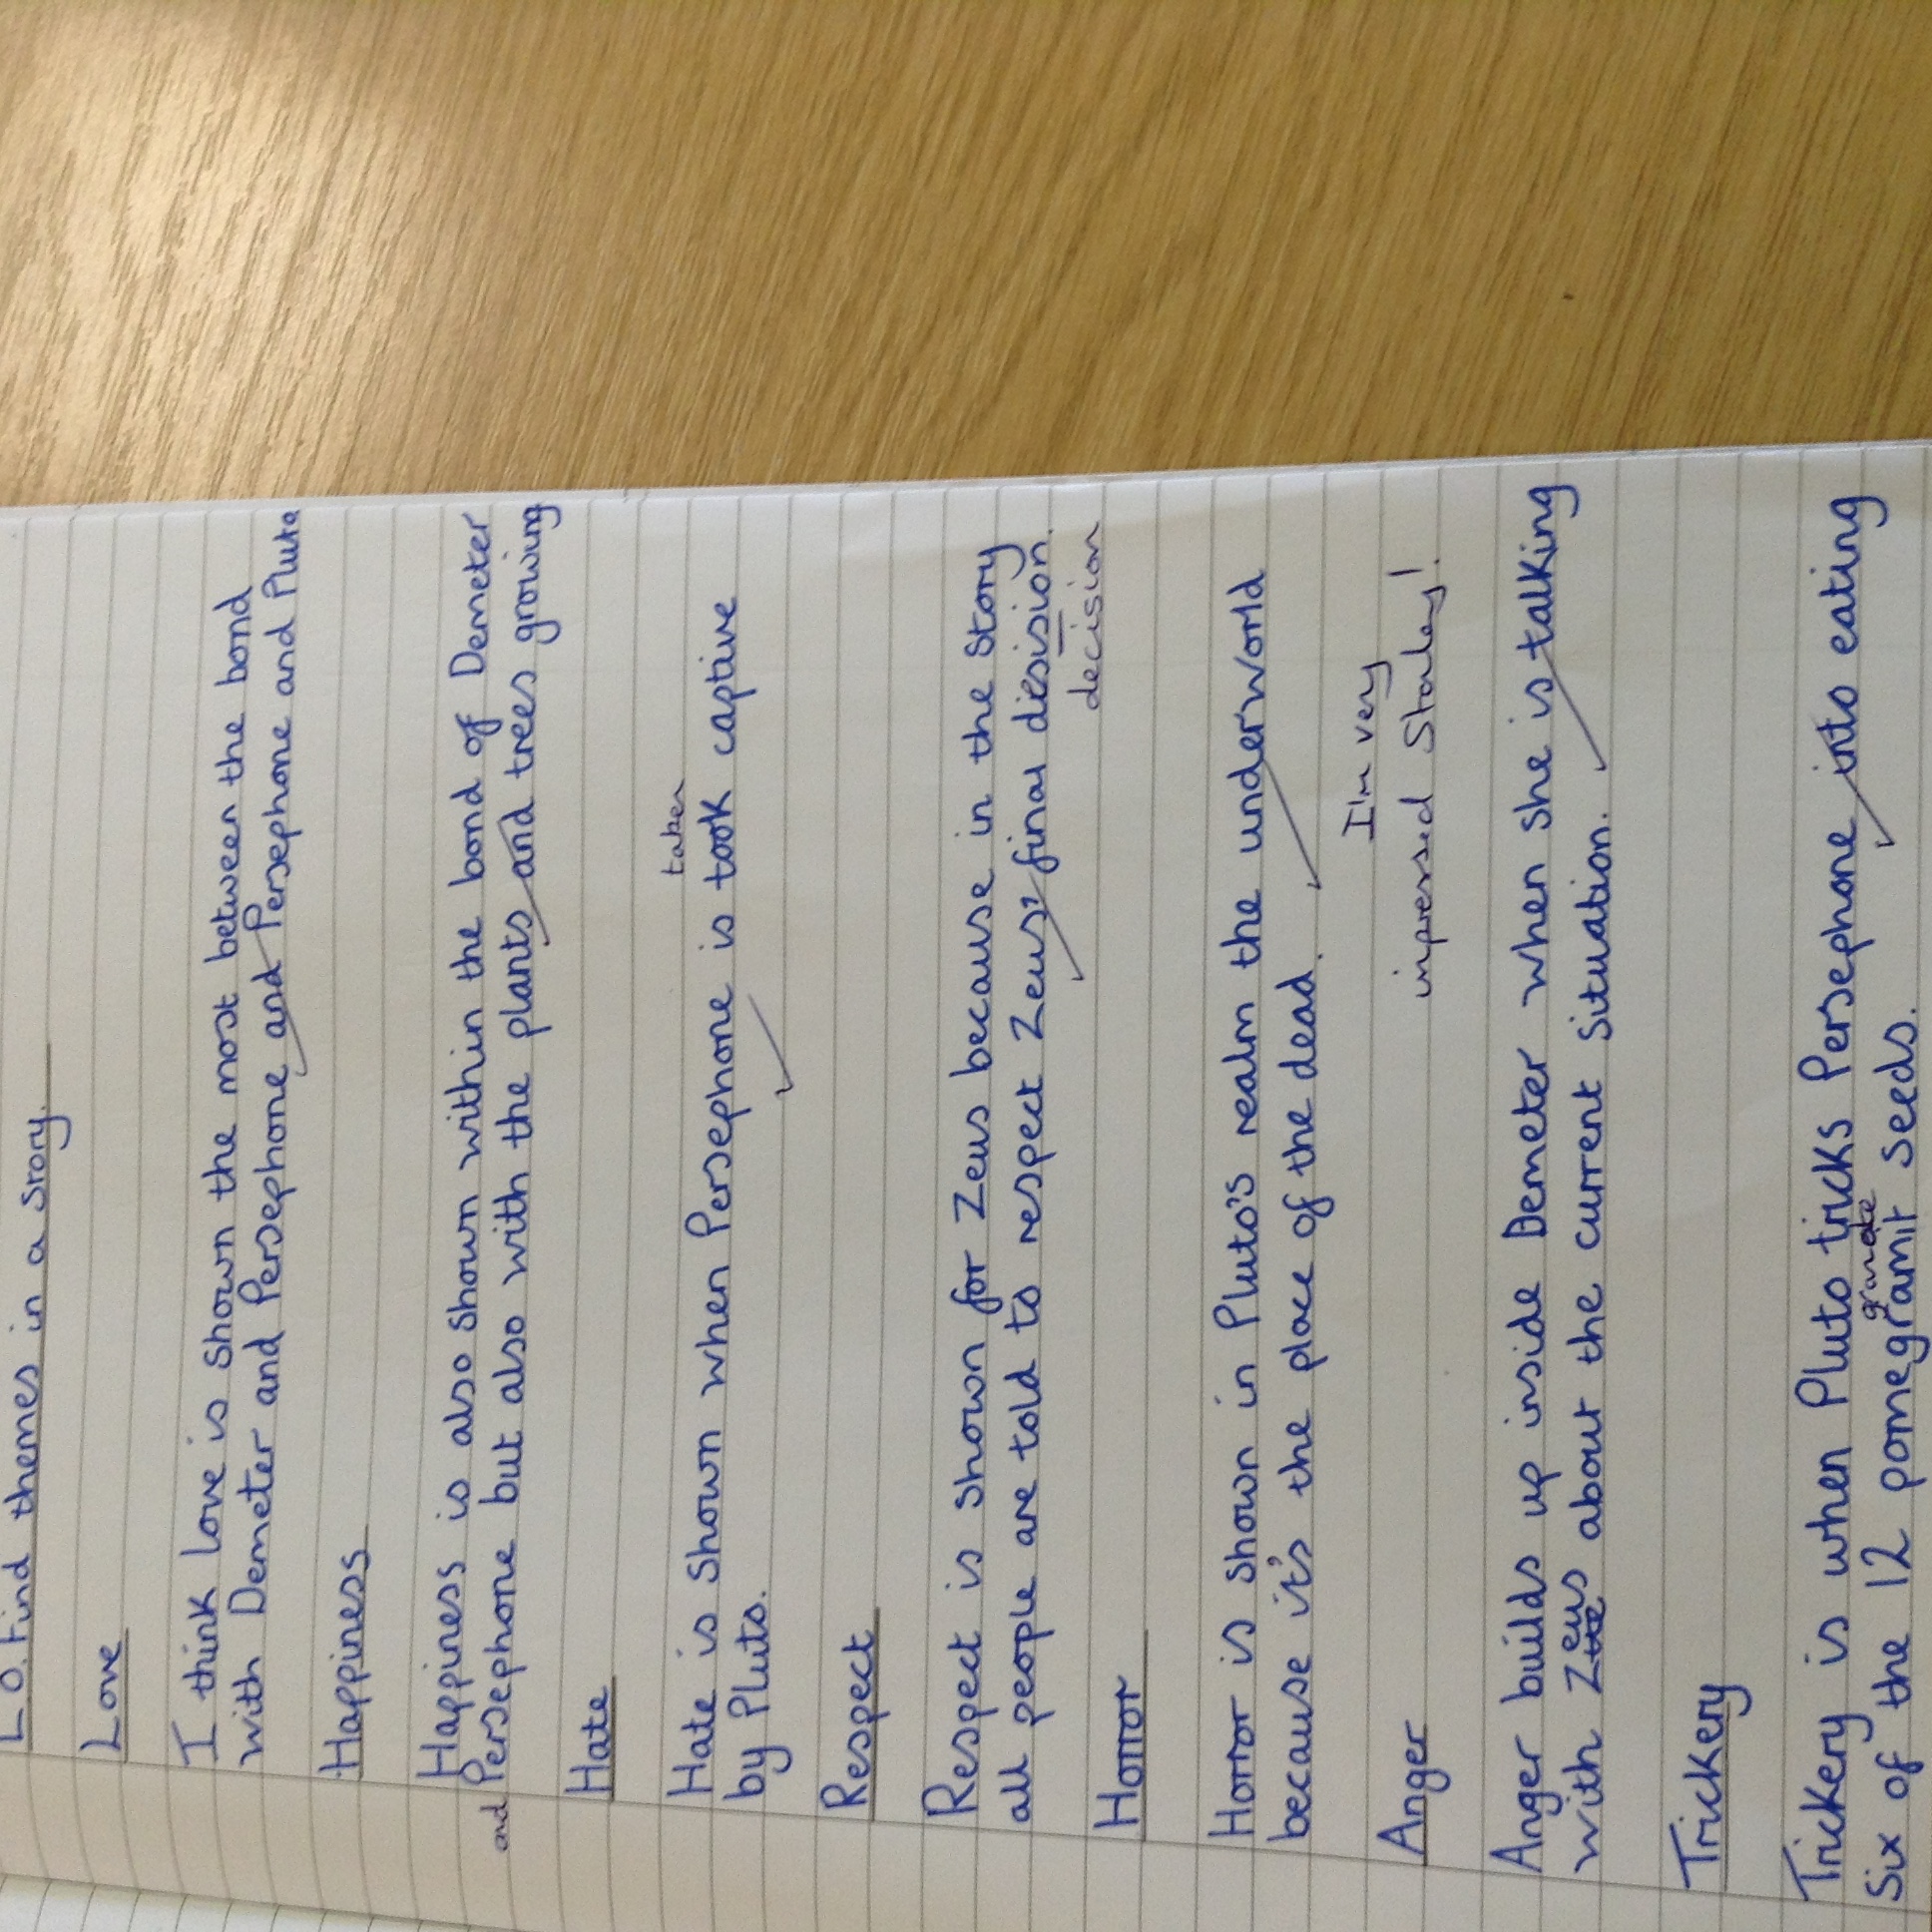 L.O. Find themes in a story.
Love
I think love is shown the most between the bond
with Demeter and Persephone and Persephone and Pluto
Happiness
Happiness is also shown within the bond of Demeter
and Persephone but also with the plants and trees growing
Hate
taken
Hate is shown when Persephone is took captive
by Pluto.
Respect
Respect is shown for Zeus because in the story
all people are told to respect Zeus' final disision.
decision
Horror
Horror is shown in Pluto's realm the underworld
because it's the place of the dead.
I'm very
impressed Stanley!
Anger
Anger builds up inside Demeter when she is talking
with Zeus about the current situation.
Trickery
Trickery is when Pluto tricks Persephone into eating
granate
six of the 12 pomegramit seeds.